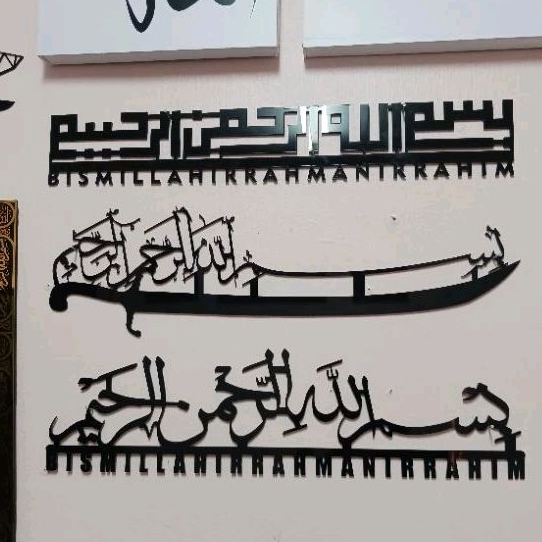 بسم الله الرحمن الرحيم
BISMILLAHIRRAHMANIRRAHIM
بسم الله الرحمن الرحيم
بِسْمِ اللهِ الرَّحْمٰنِ الرَّحِيْمِ
BISMILLAHIRRAHMANIRRAHIM